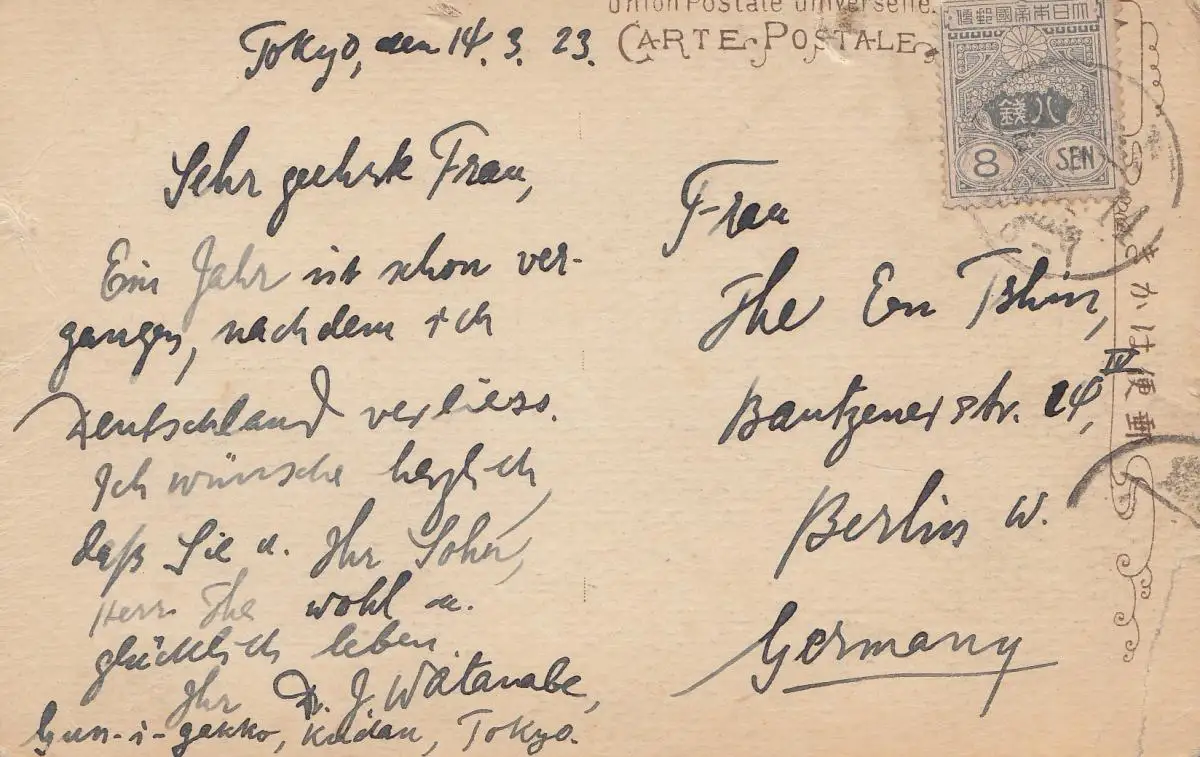 Union Postale Universelle.
CARTE POSTALE
大日本帝國郵便
八錢
8 SEN
郵便はかき
Tokyo, den 14. 3. 23.
Sehr geehrte Frau,
Ein Jahr ist schon ver-
gangen, nachdem ich
Deutschland verliess.
Ich wünsche herzlich,
daß Sie u. Ihr Sohn,
Herr Ihe wohl u.
glücklich leben.
Ihr Dr. J. Watanabe,
Gun-i-gakko, Kudan, Tokyo.
Frau
Ihe En Tshin,
Bautzenerstr. 24, IV
Berlin W.
Germany